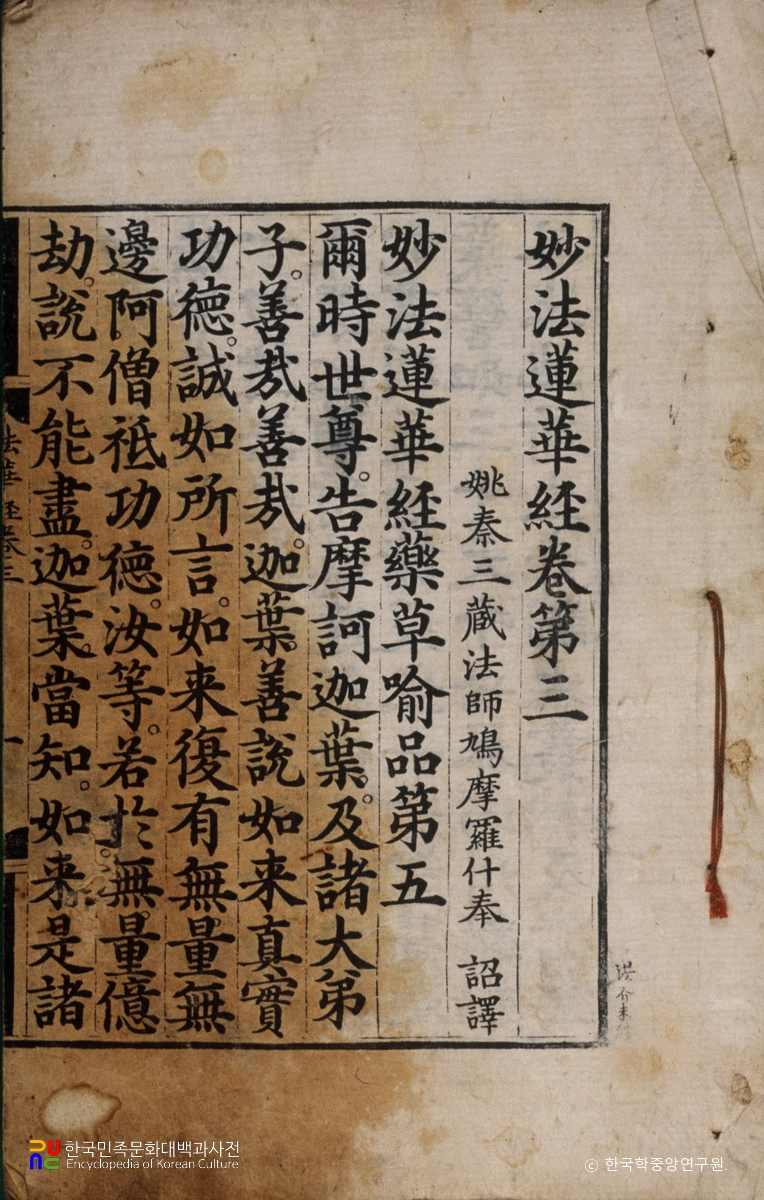 妙法蓮華経卷第三
姚秦三蔵法師鳩摩羅什奉 詔譯
妙法蓮華経藥草喻品第五
爾時世尊。告摩訶迦葉。及諸大弟
子。善㢤善㢤。迦葉。善說如来真實
功德。誠如所言。如来復有無量無
邊阿僧祇功德。汝等。若於無量億
劫。說不能盡。迦葉。當知。如来是諸
法華経卷三
한국민족문화대백과사전
Encyclopedia of Korean Culture
© 한국학중앙연구원